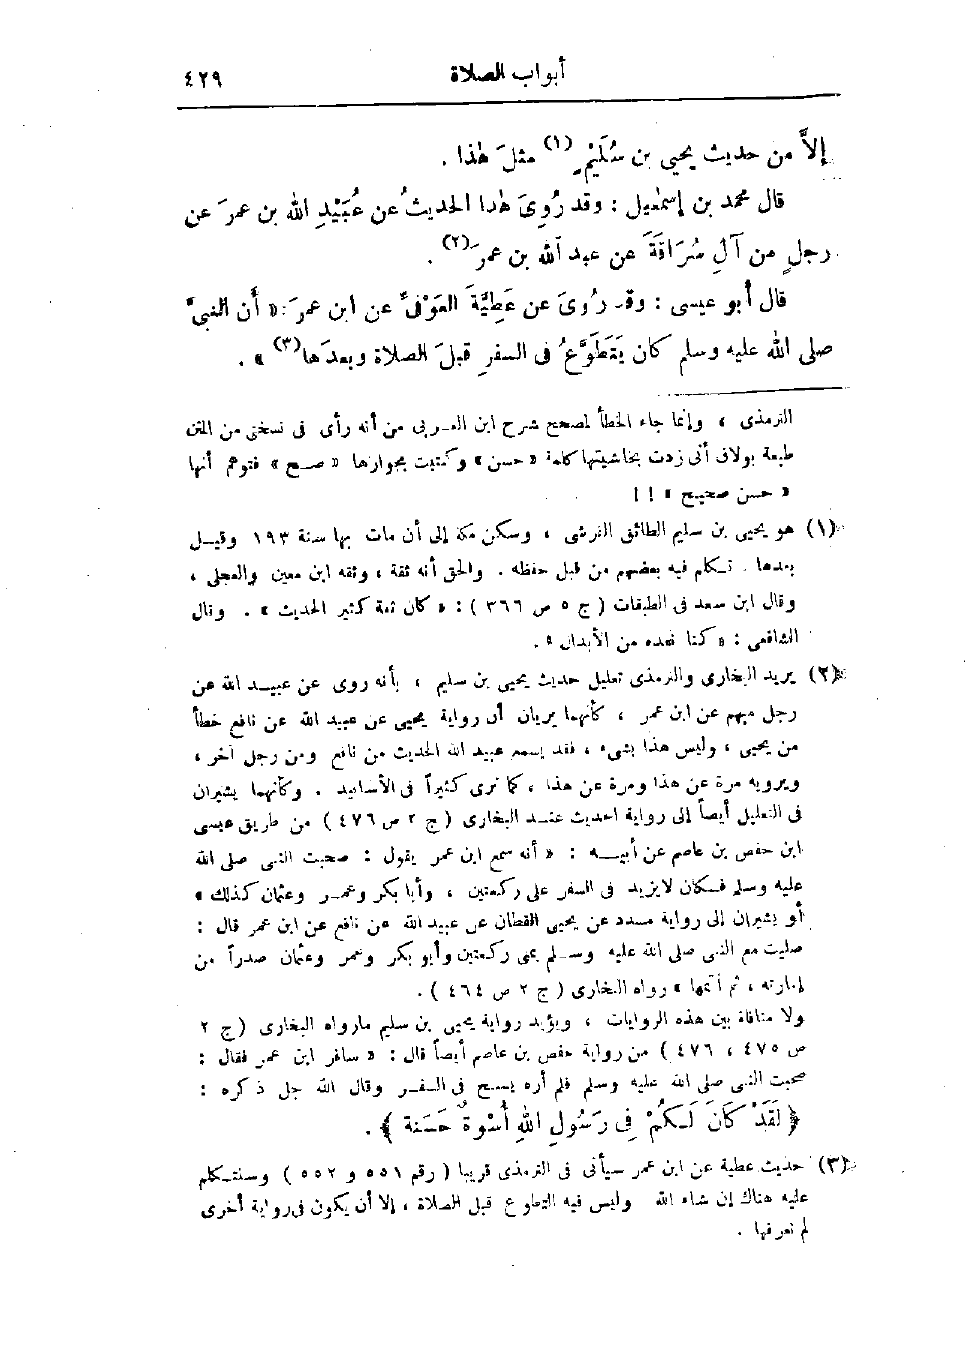 أبواب الصلاة ٤٢٩
إلاَّ من حديث يحيى بن سُلَيْمٍ (١) مثلَ هذا .
قال محمد بن إسمعيل : وقد رُوِىَ هذا الحديثُ عن عُبَيْدِ الله بن عمرَ عن
رجلٍ من آلِ سُرَاقَةَ عن عبد الله بن عمرَ (٢) .
قال أبو عيسى : وقد رُوِىَ عن عَطِيَّةَ العَوْفِىِّ عن ابن عمرَ : « أن النبىَّ
صلى الله عليه وسلم كان يَتَطَوَّعُ فى السفرِ قبلَ الصلاة وبعدَها (٣) » .
الترمذى ، وإنما جاء الخطأ لمصحح شرح ابن العربى من أنه رأى فى نسختى من المتن
طبعة بولاق أنى زدت بحاشيتها كلمة « حسن » وكتبت بجوارها « صح » فتوهم أنها
« حسن صحيح » ! !
(١) هو يحيى بن سليم الطائفى القرشى ، وسكن مكة إلى أن مات بها سنة ١٩٣ وقيل
بعدها . تكلم فيه بعضهم من قبل حفظه . والحق أنه ثقة ، وثقه ابن معين والعجلى ،
وقال ابن سعد فى الطبقات ( ج ٥ ص ٣٦٦ ) : « كان ثقة كثير الحديث » . وقال
الشافعى : « كنا نعده من الأبدال » .
(٢) يريد البخارى والترمذى تعليل حديث يحيى بن سليم ، بأنه روى عن عبيد الله عن
رجل مبهم عن ابن عمر ، كأنهما يريان أن رواية يحيى عن عبيد الله عن نافع خطأ
من يحيى ، وليس هذا بشىء ، فقد يسمع عبيد الله الحديث من نافع ومن رجل آخر ،
ويرويه مرة عن هذا ومرة عن هذا ، كما ترى كثيراً فى الأسانيد . وكأنهما يشيران
فى التعليل أيضاً إلى رواية الحديث عند البخارى ( ج ٢ ص ٤٧٦ ) من طريق عيسى
ابن حفص بن عاصم عن أبيه : « أنه سمع ابن عمر يقول : صحبت النبى صلى الله
عليه وسلم فكان لا يزيد فى السفر على ركعتين ، وأبا بكر وعمر وعثمان كذلك »
أو يشيران إلى رواية مسدد عن يحيى القطان عن عبيد الله عن نافع عن ابن عمر قال :
صليت مع النبى صلى الله عليه وسلم بمنى ركعتين وأبو بكر وعمر وعثمان صدراً من
إمارته ، ثم أتمها » رواه البخارى ( ج ٢ ص ٤٦٤ ) .
ولا منافاة بين هذه الروايات ، ويؤيد رواية يحيى بن سليم مارواه البخارى ( ج ٢
ص ٤٧٥ ، ٤٧٦ ) من رواية حفص بن عاصم أيضاً قال : « سافر ابن عمر فقال :
صحبت النبى صلى الله عليه وسلم فلم أره يسبح فى السفر وقال الله جل ذكره :
﴿ لَقَدْ كَانَ لَكُمْ فِى رَسُولِ اللهِ أُسْوَةٌ حَسَنَة ﴾ .
(٣) حديث عطية عن ابن عمر سيأتى فى الترمذى قريبا ( رقم ٥٥١ و ٥٥٢ ) وسنتكلم
عليه هناك إن شاء الله وليس فيه التطوع قبل الصلاة ، إلا أن يكون فى رواية أخرى
لم نعرفها .